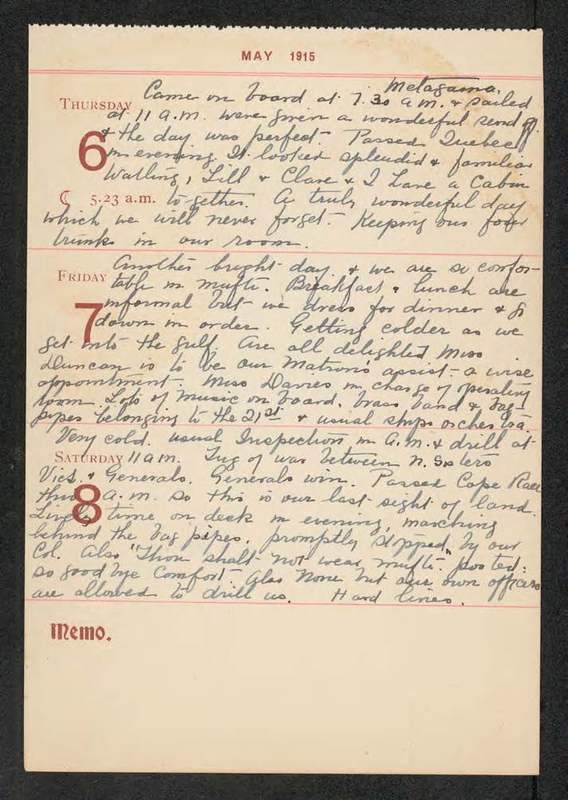 MAY 1915
Metagama.
THURSDAY Came on board at 7.30 a.m. & sailed
at 11 a.m. were given a wonderful send off.
6 & the day was perfect. Passed Quebec
in evening. It looked splendid & familiar
Watling, Lill & Clare & I have a cabin
☾ 5.23 a.m. together. A truly wonderful day
which we will never forget. Keeping our four
trunks in our room.
FRIDAY Another bright day. & we are so comfor-
table in mufti. Breakfast & lunch are
7 informal but we dress for dinner & go
down in order. Getting colder as we
get into the gulf. Are all delighted Miss
Duncan is to be our Matron's assist. a wise
appointment. Miss Davies in charge of operating
room. Lots of music on board. brass band & bag-
pipes belonging to the 21st & usual ships orchestra.
Very cold. usual Inspection in A.M. & drill at
SATURDAY 11 am. Tug of war between N. Sisters
Vics. & Generals. Generals win. Passed Cape Race
8 this a.m. so this is our last sight of land.
Lively time on deck in evening, marching
behind the bag pipes. promptly stopped by our
Col. Also "Thou shalt not wear mufti" posted:
so good bye comfort. Also none but our own officers
are allowed to drill us. Hard lines.
Memo.